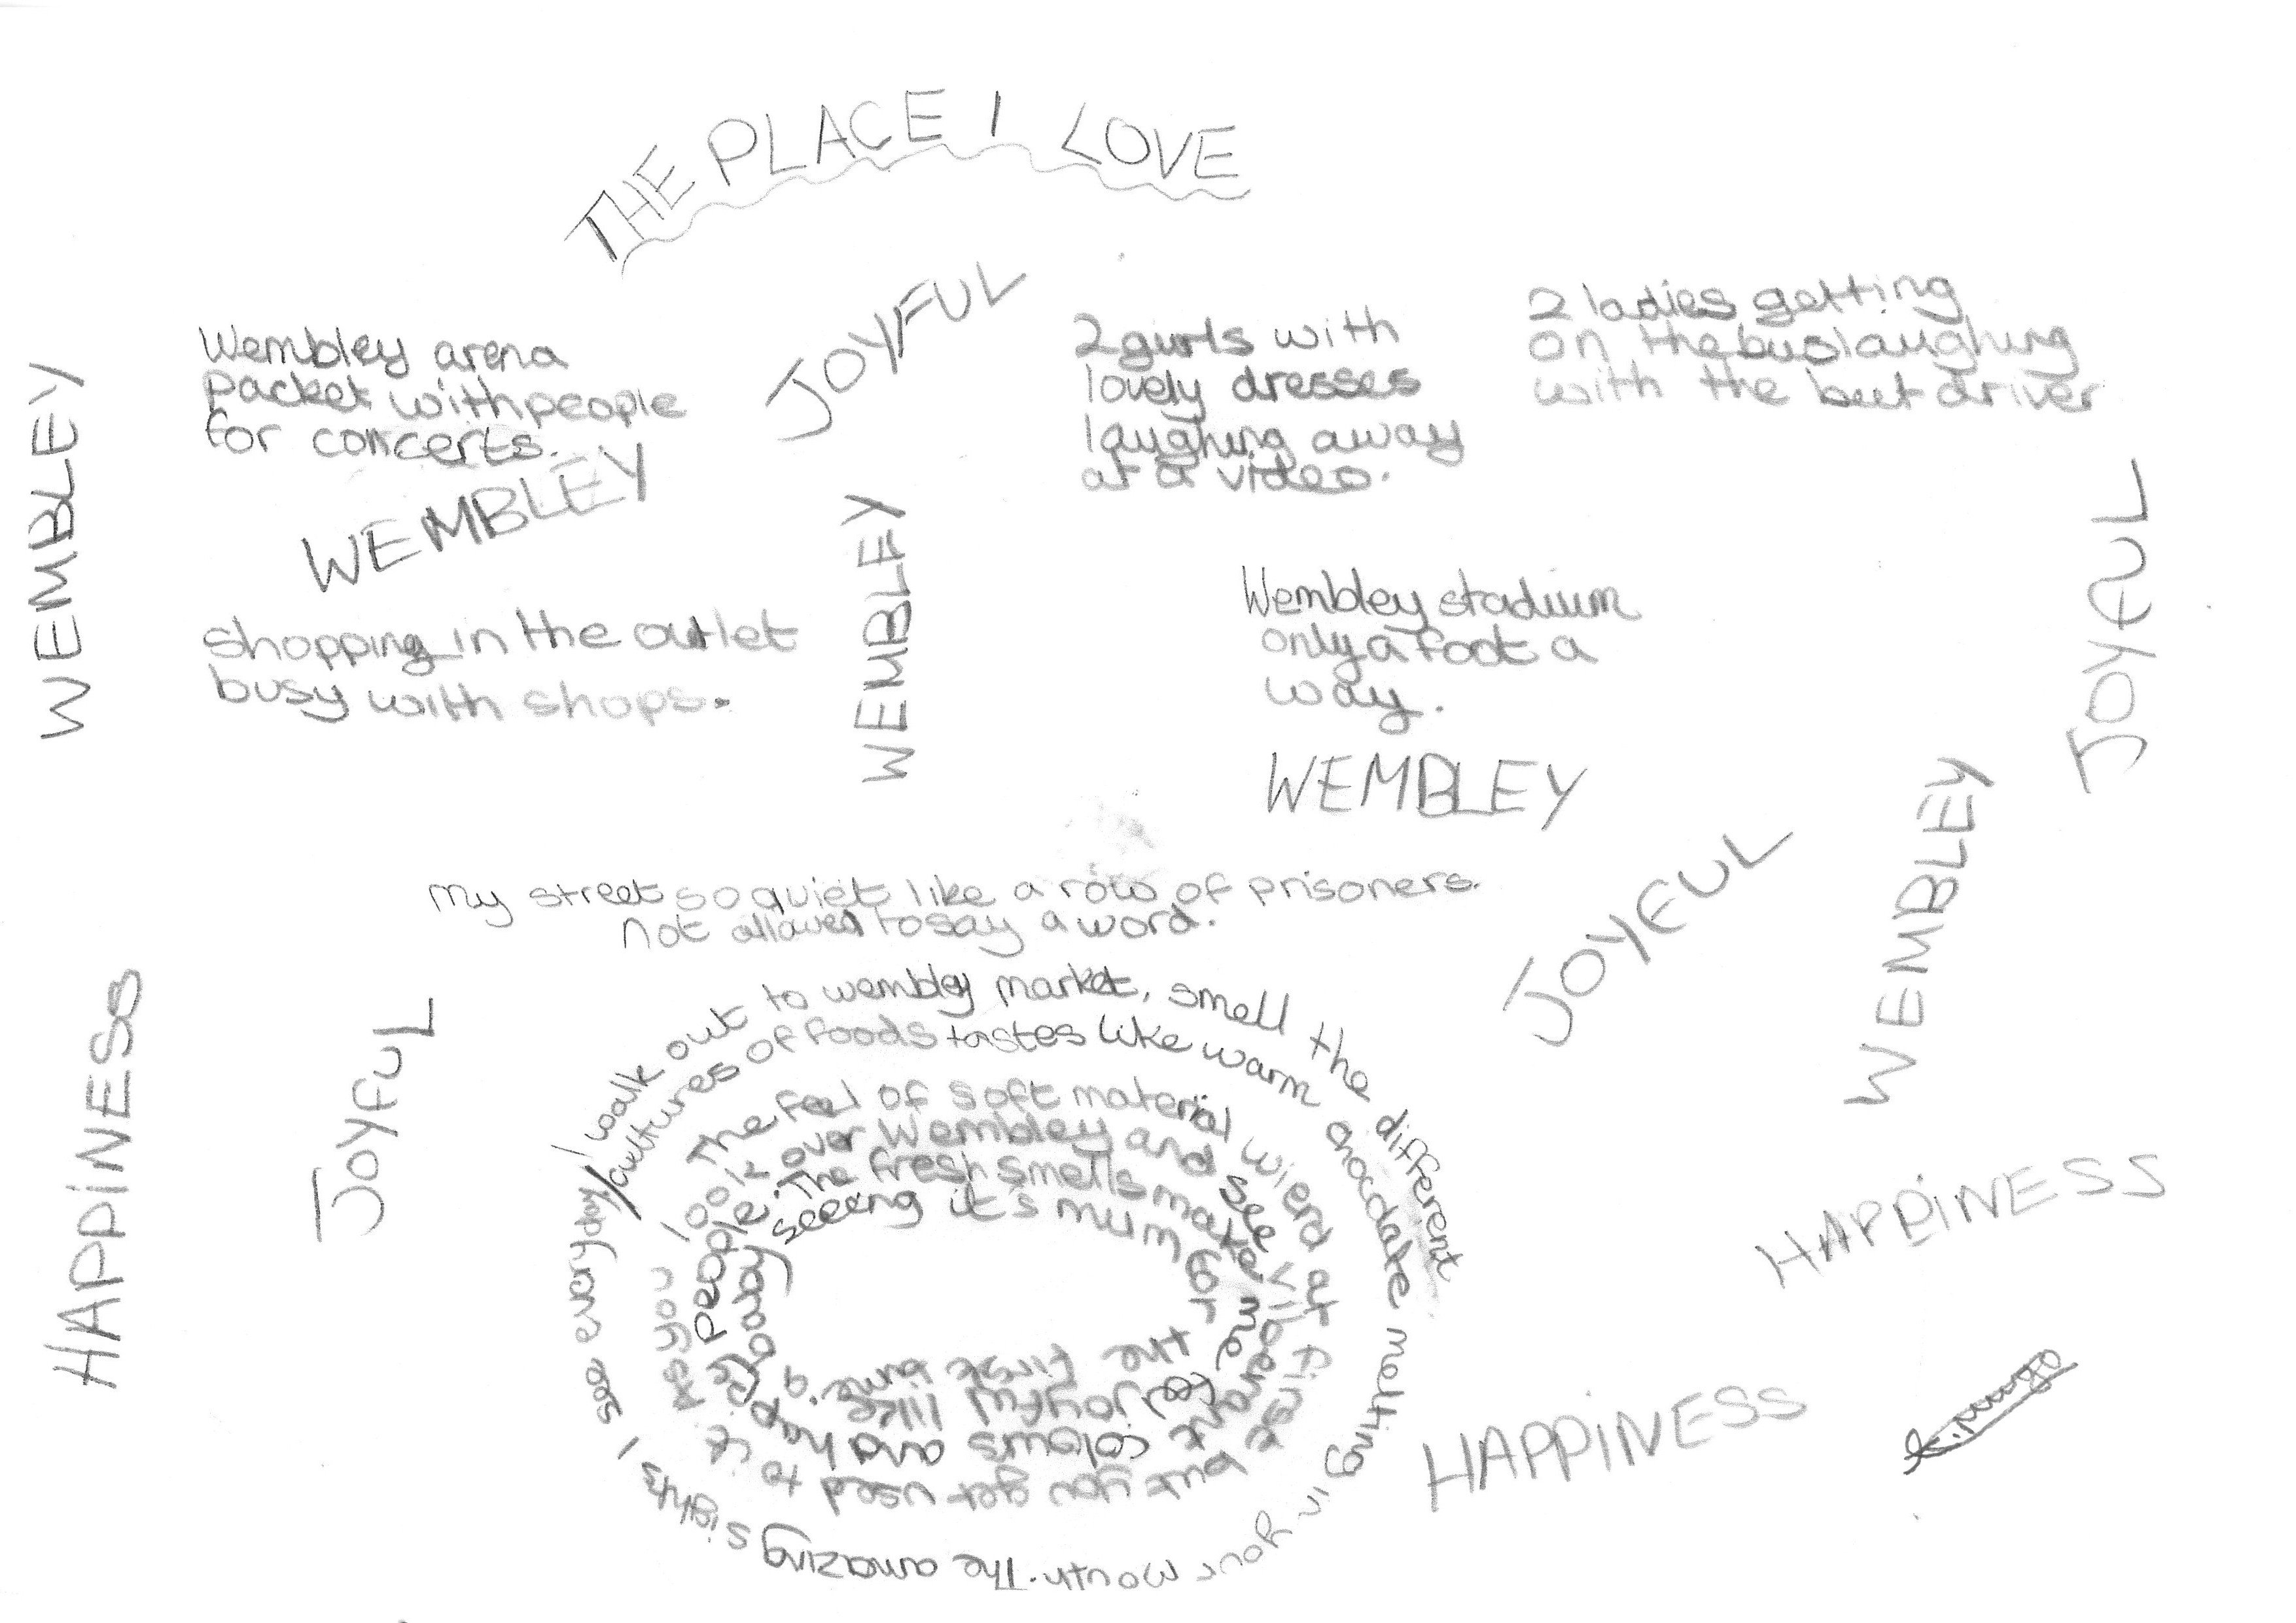 THE PLACE I LOVE
JOYFUL
Wembley arena
packet with people
for concerts.
2 gurls with
lovely dresses
laughing away
at a video.
2 ladies getting
on the bus laughing
with the but driver
WEMBLEY
WEMBLEY
WEMBLEY
JOYFUL
shopping in the outlet
busy with shops.
Wembley stadium
only a foot a
way.
WEMBLEY
My street so quiet like a row of prisoners.
Not allowed to say a word.
JOYFUL
WEMBLEY
HAPPINESS
JOYFUL
I walk out to wembley market, smell the different
cultures of foods tastes like warm chocolate melting in your mouth. The amazing sights I see everyday
The feel of soft material wierd at first but you get used to it as you
look over Wembley and see very colours and happy people. The fresh smells
away seeing it's mum for the first time.
HAPPINESS
HAPPINESS